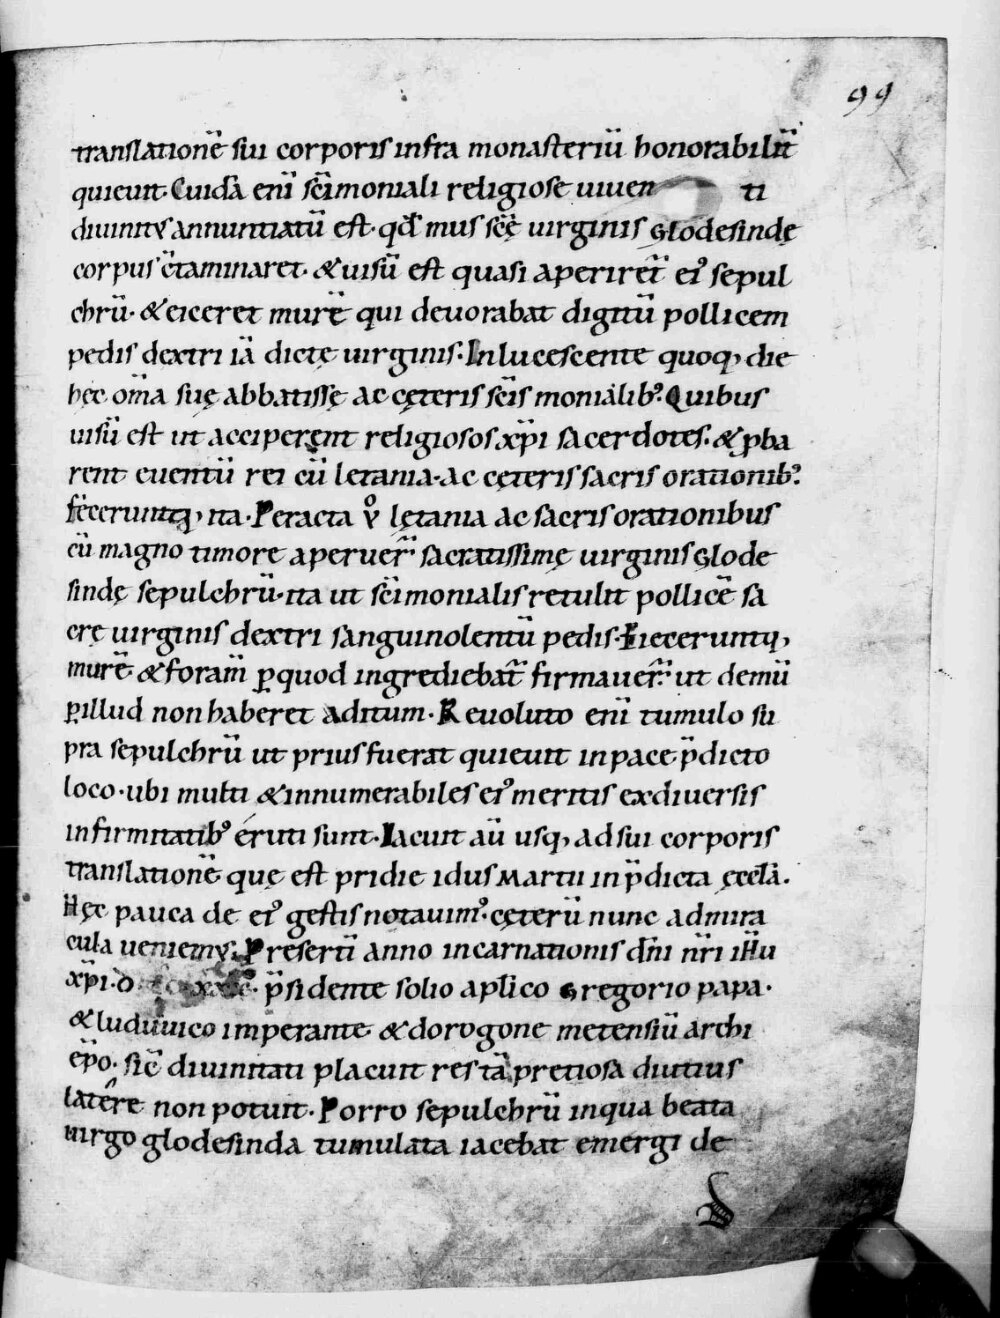 99
translationē sui corporis infra monasteriū honorabilit̄
quieuit. Cuidā eni̅ sc̄imoniali religiose uiuen ti
diuinitus annuntiatū est. qđ mus sc̄ę uirginis glodesindę
corpus c̄taminaret. & uisū est quasi aperiret̄ ei᾽ sepul
chrū. & eiceret murē qui deuorabat digitū pollicem
pedis dextri iā dictę uirginis. Inlucescente quoq; die
hęc om̄a suę abbatissę ac cęteris sc̄is monialib᾽. Quibus
uisū est ut acciperent religiosos xp̄i sacerdotes. & ꝓba
rent euentū rei cū letania. ac cęteris sacris orationib᾽.
feceruntq; ita. Peracta v̊ lętania ac sacris orationibus
cū magno timore aperuer̄ sacratissimę uirginis glode
sindę sepulchrū. ita ut sc̄imonialis retulit pollicē sa
crę uirginis dextri sanguinolentū pedis. Eieceruntq;
murē & foram̄ ꝑ quod ingrediebat̄ firmauer̄ ut demū
ꝑ illud non haberet aditum. Reuoluto eni̅ tumulo su
pra sepulchrū ut prius fuerat quieuit in pace p̄dicto
loco. ubi multi & innumerabiles ei᾽ meritis ex diuersis
infirmitatib᾽ eruti sunt. Iacuit aū usq; ad sui corporis
translationē que est pridie idus Martii in p̄dicta ęccl̄a.
Hęc pauca de ei᾽ gestis notauim᾽. cęterū nunc ad mira
cula ueniemus. Presertī anno incarnationis dn̄i nr̄i ihū
xp̄i. p̄sidente solio apl̄ico Gregorio papa.
& luduuico imperante & dorogone metensiū archi
ep̄o. sic̄ diuinitati placuit res tā pretiosa diutius
latere non potuit. Porro sepulchrū in qua beata
uirgo glodesinda tumulata iacebat emergi de